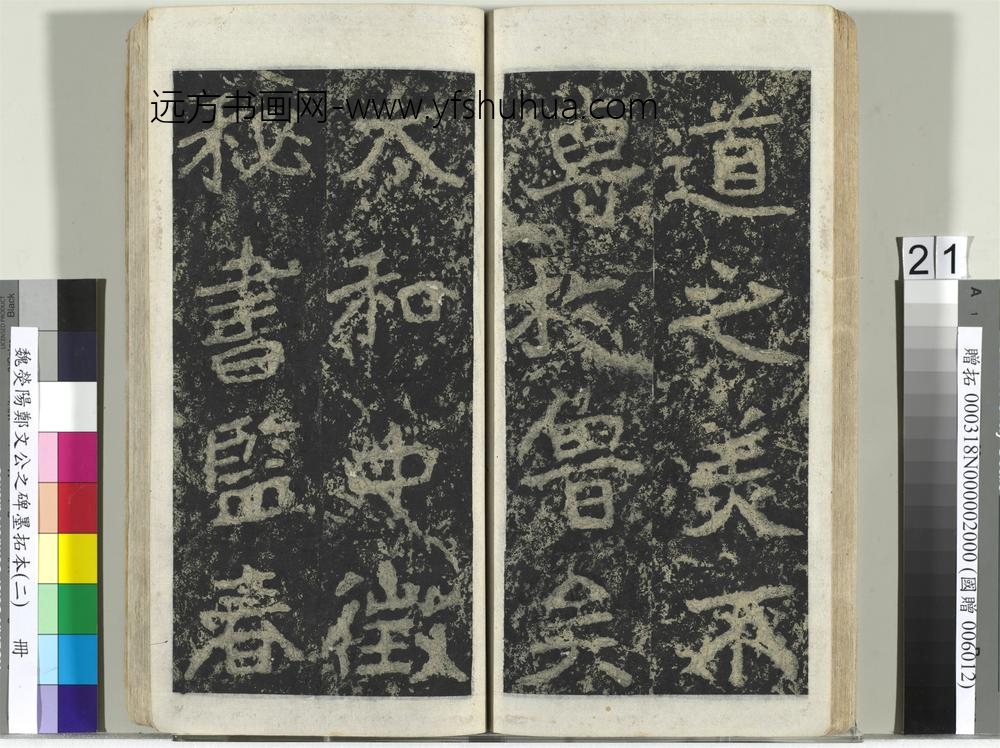 远方书画网-www.yfshuhua.com
道之美不
專於魯矣
太和中徵
秘書監春
21
贈拓 000318N000002000 (國贈 006012)
魏滎陽鄭文公之碑墨拓本(二) 冊
Black
A
1